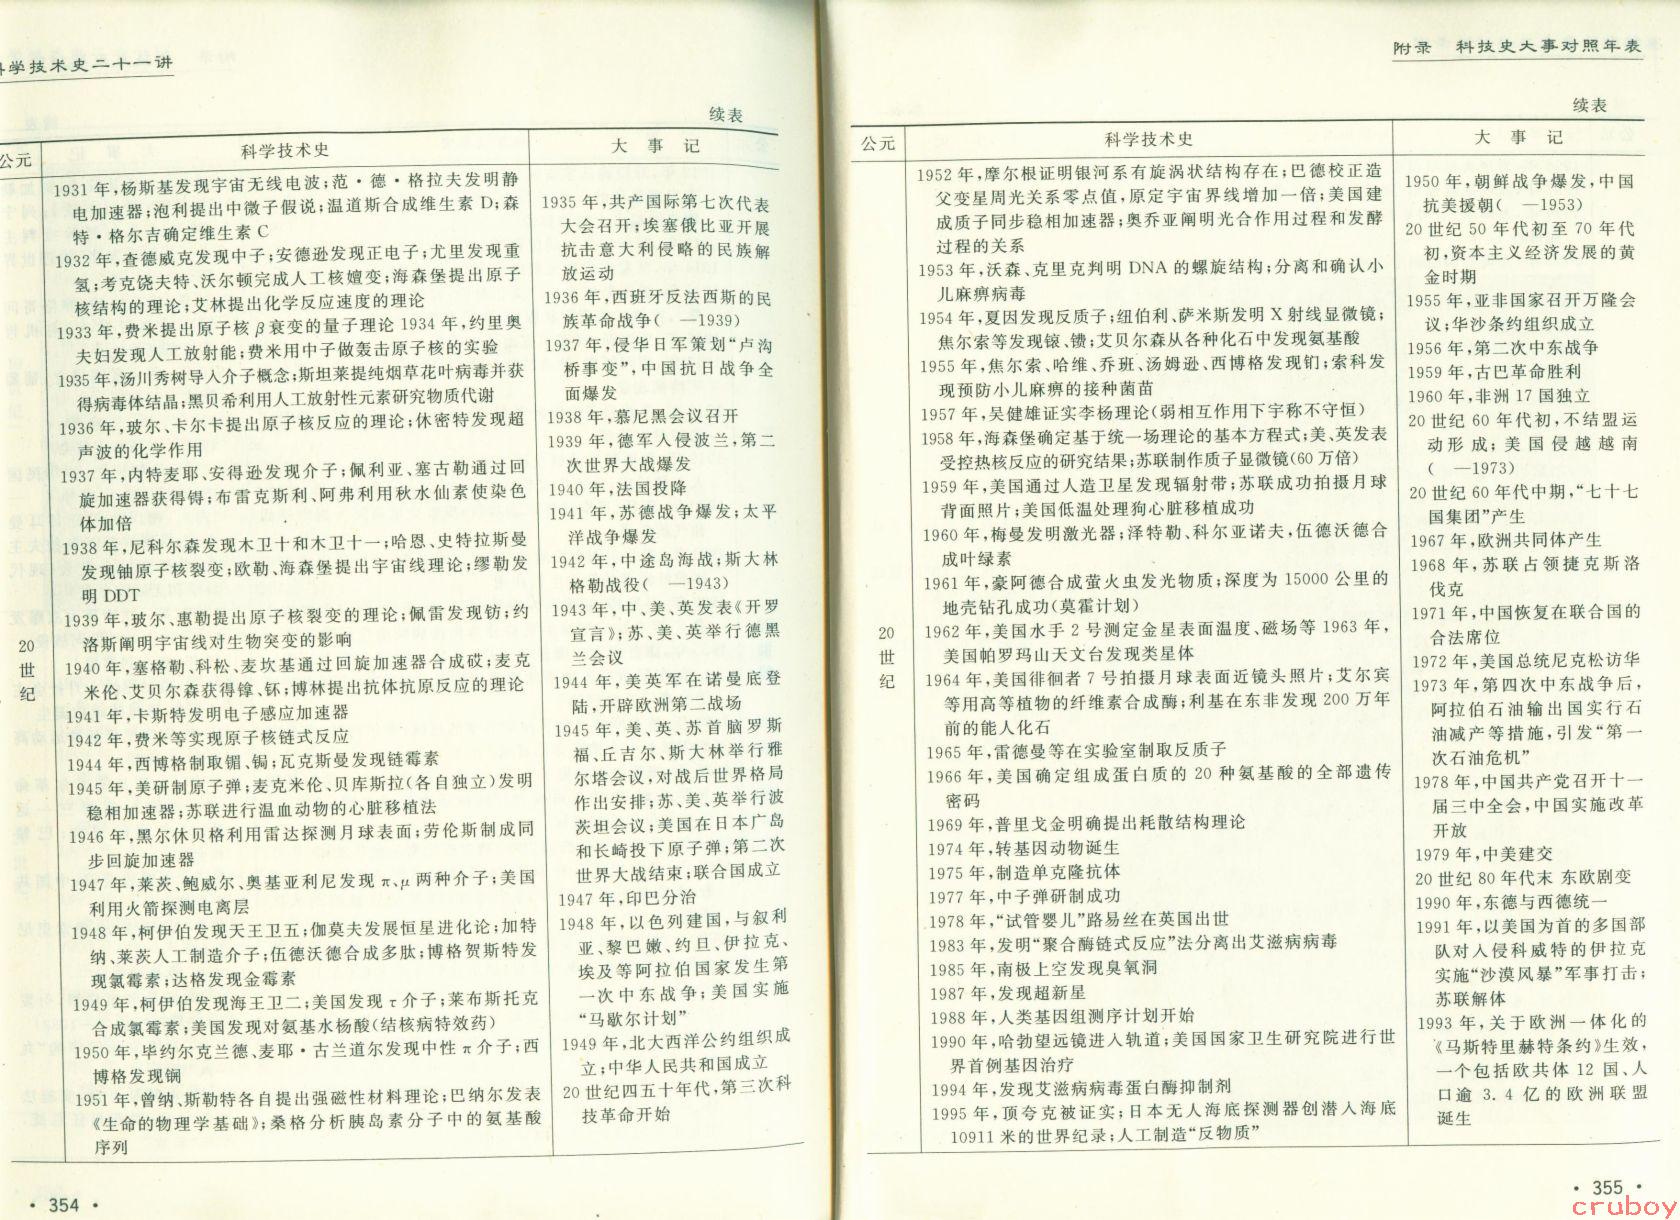 科学技术史二十一讲
续表
公元
科学技术史
大 事 记
20
世
纪
1931 年,杨斯基发现宇宙无线电波;范·德·格拉夫发明静
电加速器;泡利提出中微子假说;温道斯合成维生素 D;森
特·格尔吉确定维生素 C
1932 年,查德威克发现中子;安德逊发现正电子;尤里发现重
氢;考克饶夫特、沃尔顿完成人工核嬗变;海森堡提出原子
核结构的理论;艾林提出化学反应速度的理论
1933 年,费米提出原子核 β 衰变的量子理论 1934 年,约里奥
夫妇发现人工放射能;费米用中子做轰击原子核的实验
1935 年,汤川秀树导入介子概念;斯坦莱提纯烟草花叶病毒并获
得病毒体结晶;黑贝希利用人工放射性元素研究物质代谢
1936 年,玻尔、卡尔卡提出原子核反应的理论;休密特发现超
声波的化学作用
1937 年,内特麦耶、安得逊发现介子;佩利亚、塞古勒通过回
旋加速器获得锝;布雷克斯利、阿弗利用秋水仙素使染色
体加倍
1938 年,尼科尔森发现木卫十和木卫十一;哈恩、史特拉斯曼
发现铀原子核裂变;欧勒、海森堡提出宇宙线理论;缪勒发
明 DDT
1939 年,玻尔、惠勒提出原子核裂变的理论;佩雷发现钫;约
洛斯阐明宇宙线对生物突变的影响
1940 年,塞格勒、科松、麦坎基通过回旋加速器合成砹;麦克
米伦、艾贝尔森获得镎、钚;博林提出抗体抗原反应的理论
1941 年,卡斯特发明电子感应加速器
1942 年,费米等实现原子核链式反应
1944 年,西博格制取镅、锔;瓦克斯曼发现链霉素
1945 年,美研制原子弹;麦克米伦、贝库斯拉(各自独立)发明
稳相加速器;苏联进行温血动物的心脏移植法
1946 年,黑尔休贝格利用雷达探测月球表面;劳伦斯制成同
步回旋加速器
1947 年,莱茨、鲍威尔、奥基亚利尼发现 π、μ 两种介子;美国
利用火箭探测电离层
1948 年,柯伊伯发现天王卫五;伽莫夫发展恒星进化论;加特
纳、莱茨人工制造介子;伍德沃德合成多肽;博格贺斯特发
现氯霉素;达格发现金霉素
1949 年,柯伊伯发现海王卫二;美国发现 τ 介子;莱布斯托克
合成氯霉素;美国发现对氨基水杨酸(结核病特效药)
1950 年,毕约尔克兰德、麦耶·古兰道尔发现中性 π 介子;西
博格发现锎
1951 年,曾纳、斯勒特各自提出强磁性材料理论;巴纳尔发表
《生命的物理学基础》;桑格分析胰岛素分子中的氨基酸
序列
1935 年,共产国际第七次代表
大会召开;埃塞俄比亚开展
抗击意大利侵略的民族解
放运动
1936 年,西班牙反法西斯的民
族革命战争( —1939)
1937 年,侵华日军策划“卢沟
桥事变”,中国抗日战争全
面爆发
1938 年,慕尼黑会议召开
1939 年,德军入侵波兰,第二
次世界大战爆发
1940 年,法国投降
1941 年,苏德战争爆发;太平
洋战争爆发
1942 年,中途岛海战;斯大林
格勒战役( —1943)
1943 年,中、美、英发表《开罗
宣言》;苏、美、英举行德黑
兰会议
1944 年,美英军在诺曼底登
陆,开辟欧洲第二战场
1945 年,美、英、苏首脑罗斯
福、丘吉尔、斯大林举行雅
尔塔会议,对战后世界格局
作出安排;苏、美、英举行波
茨坦会议;美国在日本广岛
和长崎投下原子弹;第二次
世界大战结束;联合国成立
1947 年,印巴分治
1948 年,以色列建国,与叙利
亚、黎巴嫩、约旦、伊拉克、
埃及等阿拉伯国家发生第
一次中东战争;美国实施
“马歇尔计划”
1949 年,北大西洋公约组织成
立;中华人民共和国成立
20 世纪四五十年代,第三次科
技革命开始
· 354 ·
附录 科技史大事对照年表
续表
公元
科学技术史
大 事 记
20
世
纪
1952 年,摩尔根证明银河系有旋涡状结构存在;巴德校正造
父变星周光关系零点值,原定宇宙界线增加一倍;美国建
成质子同步稳相加速器;奥乔亚阐明光合作用过程和发酵
过程的关系
1953 年,沃森、克里克判明 DNA 的螺旋结构;分离和确认小
儿麻痹病毒
1954 年,夏因发现反质子;纽伯利、萨米斯发明 X 射线显微镜;
焦尔索等发现锿、镄;艾贝尔森从各种化石中发现氨基酸
1955 年,焦尔索、哈维、乔班、汤姆逊、西博格发现钔;索科发
现预防小儿麻痹的接种菌苗
1957 年,吴健雄证实李杨理论(弱相互作用下宇称不守恒)
1958 年,海森堡确定基于统一场理论的基本方程式;美、英发表
受控热核反应的研究结果;苏联制作质子显微镜(60 万倍)
1959 年,美国通过人造卫星发现辐射带;苏联成功拍摄月球
背面照片;美国低温处理狗心脏移植成功
1960 年,梅曼发明激光器;泽特勒、科尔亚诺夫,伍德沃德合
成叶绿素
1961 年,豪阿德合成萤火虫发光物质;深度为 15000 公里的
地壳钻孔成功(莫霍计划)
1962 年,美国水手 2 号测定金星表面温度、磁场等 1963 年,
美国帕罗玛山天文台发现类星体
1964 年,美国徘徊者 7 号拍摄月球表面近镜头照片;艾尔宾
等用高等植物的纤维素合成酶;利基在东非发现 200 万年
前的能人化石
1965 年,雷德曼等在实验室制取反质子
1966 年,美国确定组成蛋白质的 20 种氨基酸的全部遗传
密码
1969 年,普里戈金明确提出耗散结构理论
1974 年,转基因动物诞生
1975 年,制造单克隆抗体
1977 年,中子弹研制成功
1978 年,“试管婴儿”路易丝在英国出世
1983 年,发明“聚合酶链式反应”法分离出艾滋病病毒
1985 年,南极上空发现臭氧洞
1987 年,发现超新星
1988 年,人类基因组测序计划开始
1990 年,哈勃望远镜进入轨道;美国国家卫生研究院进行世
界首例基因治疗
1994 年,发现艾滋病病毒蛋白酶抑制剂
1995 年,顶夸克被证实;日本无人海底探测器创潜入海底
10911 米的世界纪录;人工制造“反物质”
1950 年,朝鲜战争爆发,中国
抗美援朝( —1953)
20 世纪 50 年代初至 70 年代
初,资本主义经济发展的黄
金时期
1955 年,亚非国家召开万隆会
议;华沙条约组织成立
1956 年,第二次中东战争
1959 年,古巴革命胜利
1960 年,非洲 17 国独立
20 世纪 60 年代初,不结盟运
动形成;美国侵越越南
( —1973)
20 世纪 60 年代中期,“七十七
国集团”产生
1967 年,欧洲共同体产生
1968 年,苏联占领捷克斯洛
伐克
1971 年,中国恢复在联合国的
合法席位
1972 年,美国总统尼克松访华
1973 年,第四次中东战争后,
阿拉伯石油输出国实行石
油减产等措施,引发“第一
次石油危机”
1978 年,中国共产党召开十一
届三中全会,中国实施改革
开放
1979 年,中美建交
20 世纪 80 年代末 东欧剧变
1990 年,东德与西德统一
1991 年,以美国为首的多国部
队对入侵科威特的伊拉克
实施“沙漠风暴”军事打击;
苏联解体
1993 年,关于欧洲一体化的
《马斯特里赫特条约》生效,
一个包括欧共体 12 国、人
口逾 3.4 亿的欧洲联盟
诞生
· 355 ·
cruboy